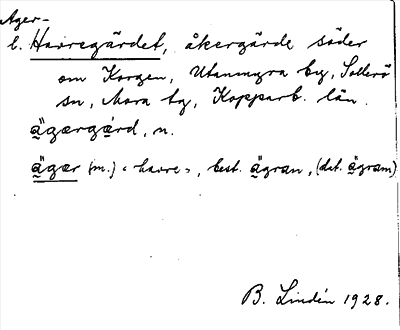 Ager-
l. Havregärdet, åkergärde söder
om Korgen, Utanmyra by, Sollerö
sn, Mora tg, Kopparb. län.
ä̱gærgæ̱rd, n.
ä̱gær (m.) "havre", best. ä̱gran, (dat. ä̱gram)
B. Lindén 1928.